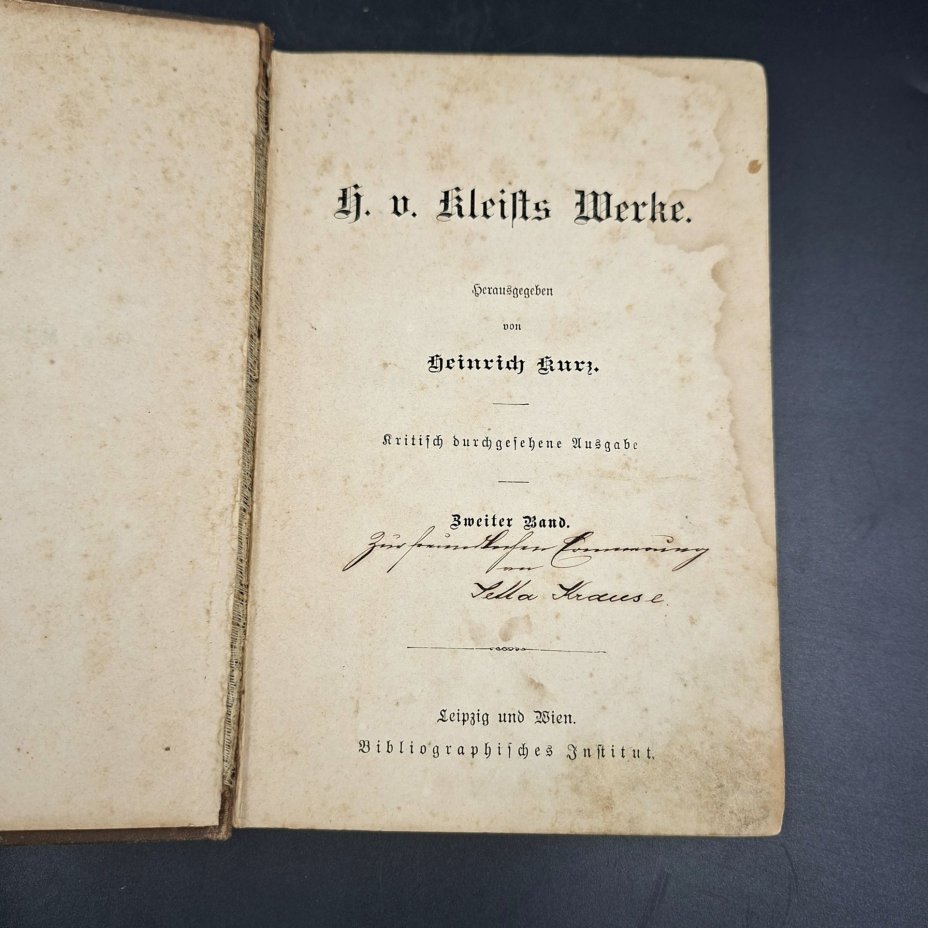 H. v. Kleiſts Werke.
Herausgegeben
von
Heinrich Kurz.
Kritiſch durchgeſehene Ausgabe
Zweiter Band.
Zur freundlichen Erinnerung
an
Krause.
Leipzig und Wien.
Bibliographiſches Inſtitut.